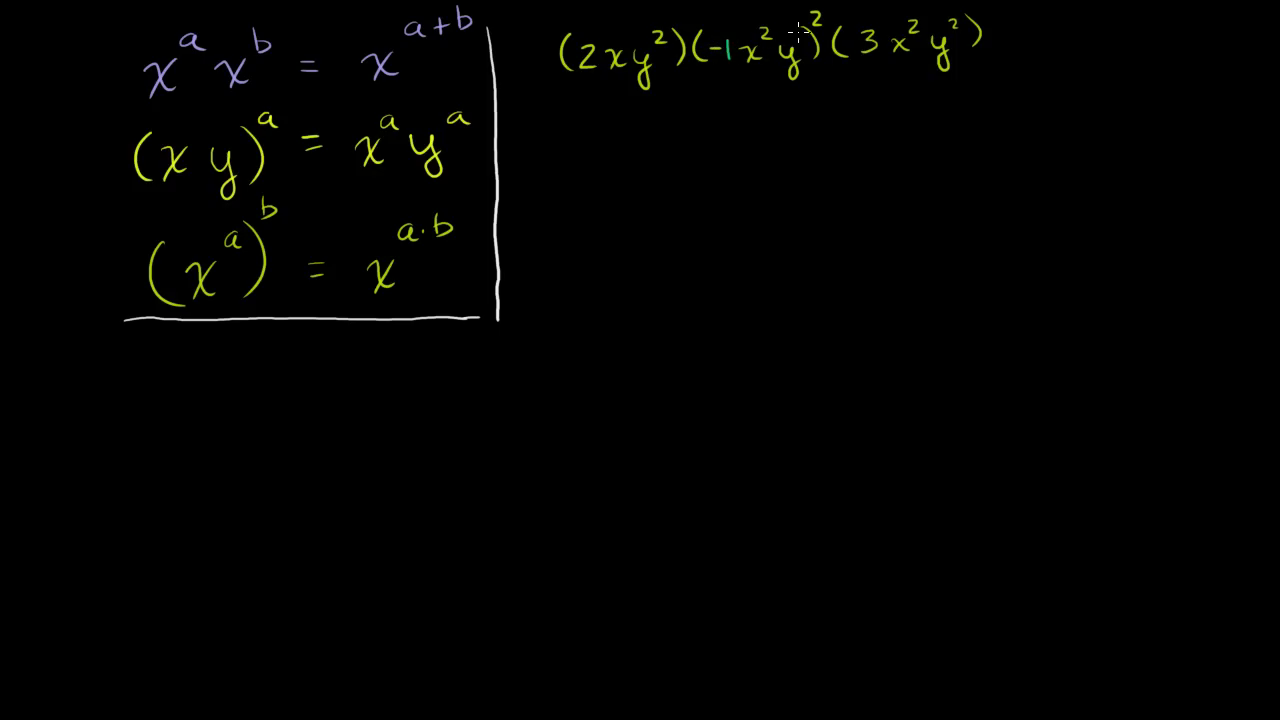 xᵃ xᵇ = xᵃ⁺ᵇ
(x y)ᵃ = xᵃ yᵃ
(xᵃ)ᵇ = xᵃ·ᵇ
(2xy²)(-1x²y)²(3x²y²)